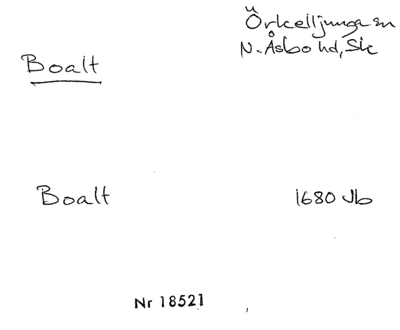 Örkelljunga sn
N. Åsbo hd, Sk
Boalt
Boalt 1680 Jb
Nr 18521